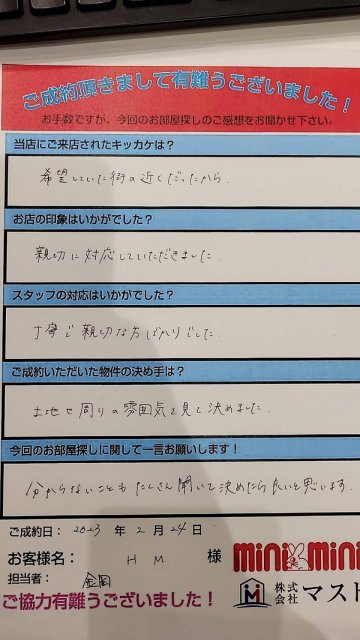 ご成約頂きまして有難うございました！
お手数ですが、今回のお部屋探しのご感想をお聞かせ下さい。
当店にご来店されたキッカケは？
希望していた街の近くだったから.
お店の印象はいかがでした？
親切に対応していただきました.
スタッフの対応はいかがでした？
丁寧で親切な方ばかりでした.
ご成約いただいた物件の決め手は？
土地や周りの雰囲気を見て決めました.
今回のお部屋探しに関して一言お願いします！
分からないこともたくさん聞いて決めたら良いと思います.
ご成約日： 2023 年 2 月 24 日
お客様名： H M 様
mini mini
担当者： 金岡
株式会社 マスト
ご協力有難うございました！